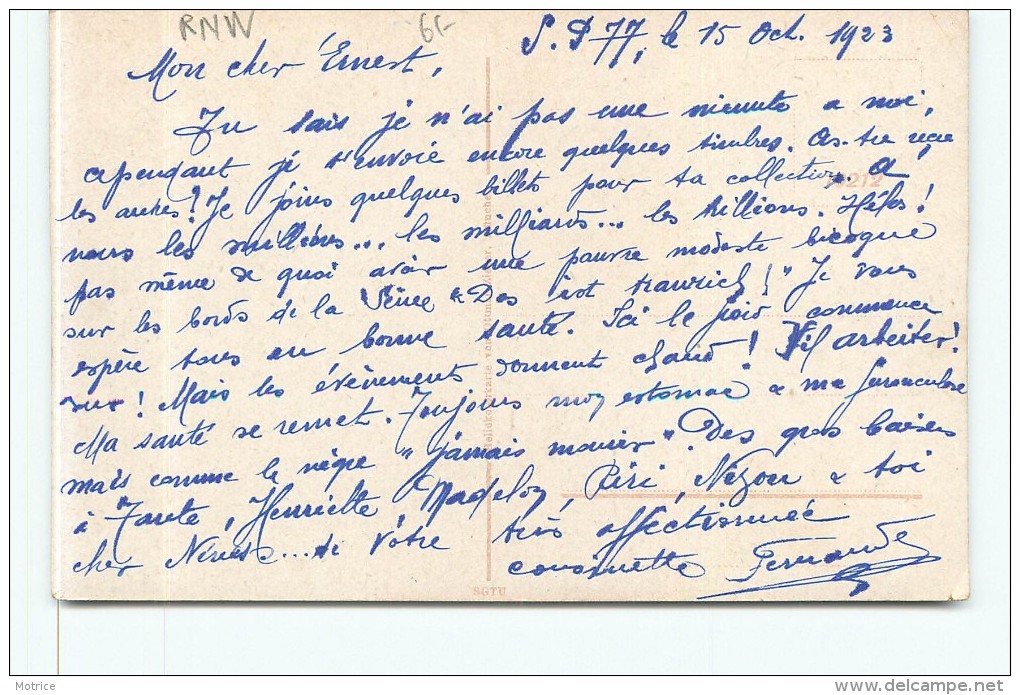 RNW 6f-
S.P 77, le 15 Oct. 1923
Mon cher Ernest,
Tu sais je n'ai pas une minute a moi,
cependant je t'envoie encore quelques timbres. As-tu reçu
les autres? Je joins quelques billets pour ta collection. A
nous les millions... les milliards... les trillions. Hélas!
pas même de quoi avoir une pauvre modeste bicoque
sur les bords de la Seine "Das ist traurich!" Je vous
espère tous en bonne santé. Ici le froid commence
dur! Mais les évènements donnent chaud! Viel arbeiter!
Ma santé se remet. Toujours mon estomac & ma furonculose
mais comme le nègre "jamais mourir". Des gros baisers
à Tante, Henriette, Madelon, Riri, Nizon & toi
cher Nénesse...de Vôtre très affectionnée
cousinette Fernande
SGTU
Motrice
http://www.delcampe.net